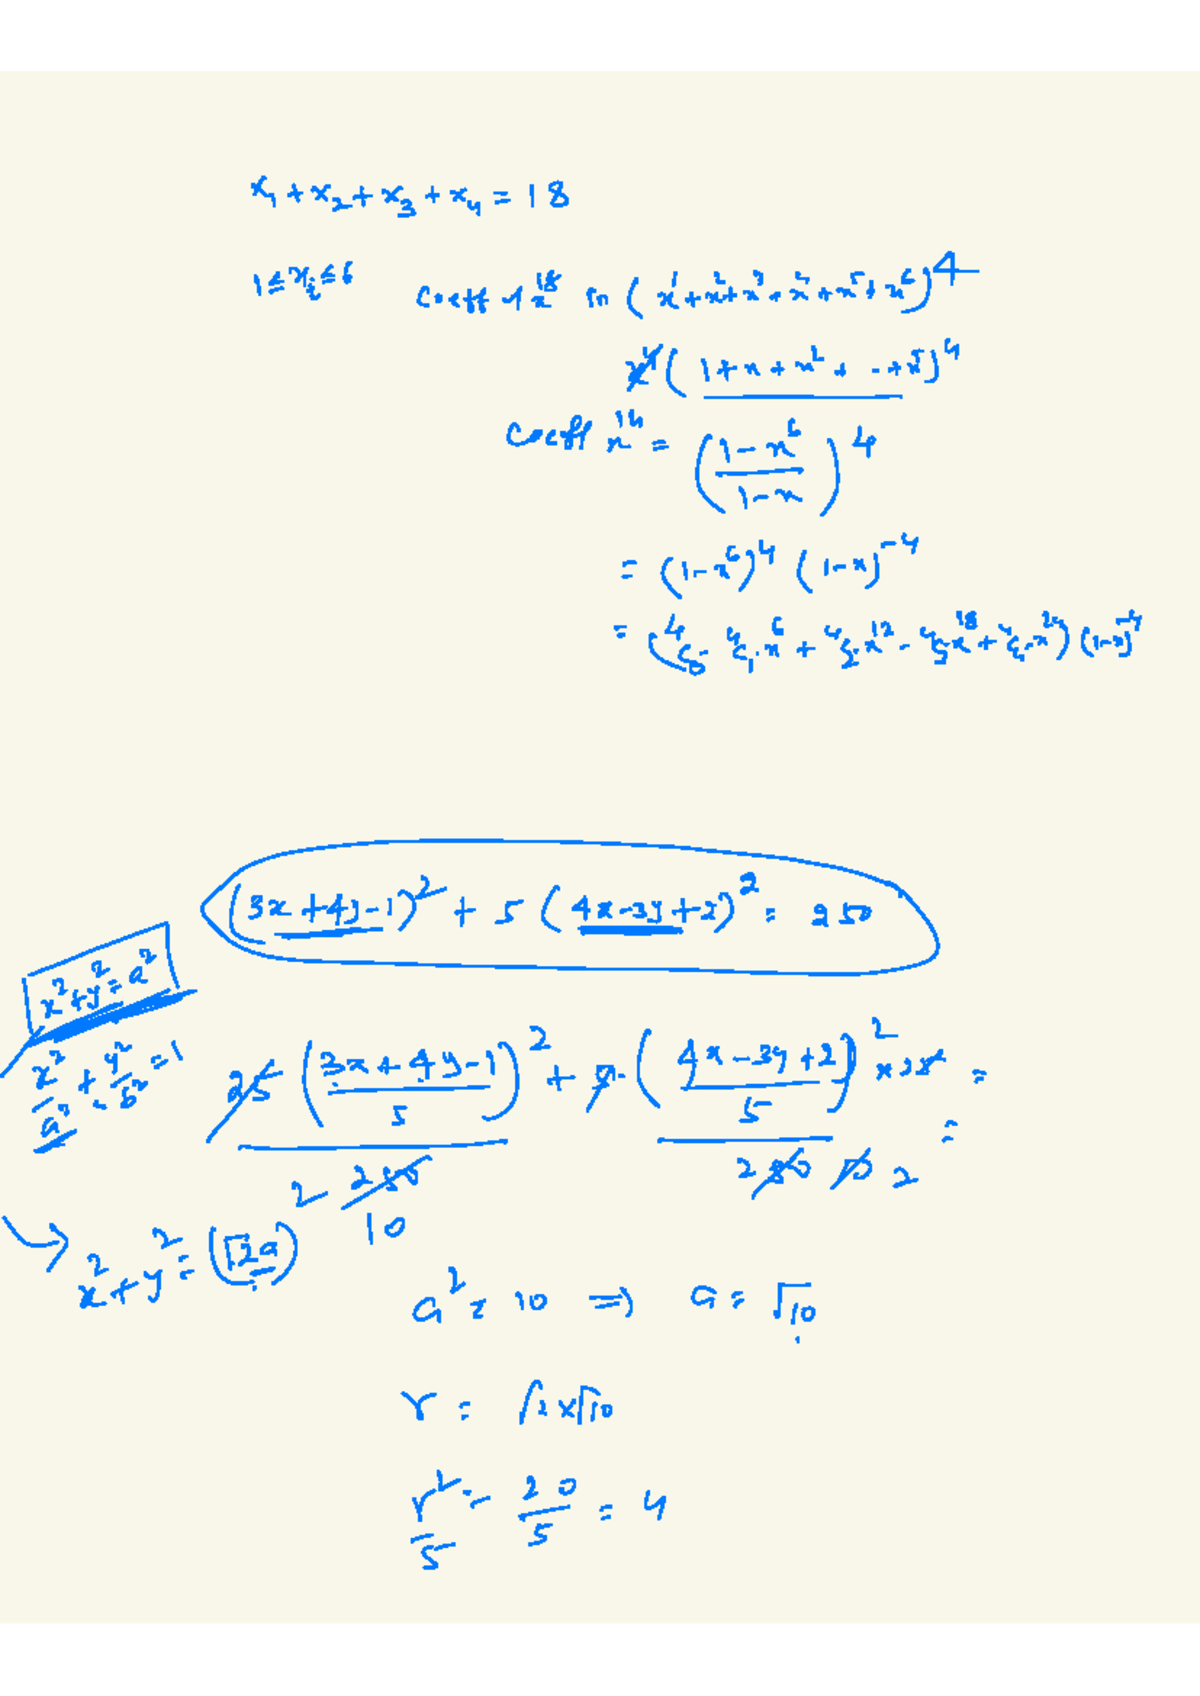 x₁ + x₂ + x₃ + x₄ = 18
1 ≤ xᵢ ≤ 6 coeff of x¹⁸ in (x¹ + x² + x³ + x⁴ + x⁵ + x⁶)⁴
x⁴(1 + x + x² + - + x⁵)⁴
coeff x¹⁴ = ((1 - x⁶)/(1 - x))⁴
= (1 - x⁶)⁴ (1 - x)⁻⁴
= (⁴C₀ - ⁴C₁·x⁶ + ⁴C₂·x¹² - ⁴C₃·x¹⁸ + ⁴C₄·x²⁴)(1-x)⁻⁴
(3x + 4y - 1)² + 5(4x - 3y + 2)² = 250
x² + y² = a²
x²/a² + y²/b² = 1
25((3x + 4y - 1)/5)² + 5·((4x - 3y + 2)/5)² × 25 =
=
2 250 2 250 10 2
10
→ x² + y² = (√2a)²
a² = 10 ⇒ a = √10
r = √2 × √10
r²/5 = 20/5 = 4